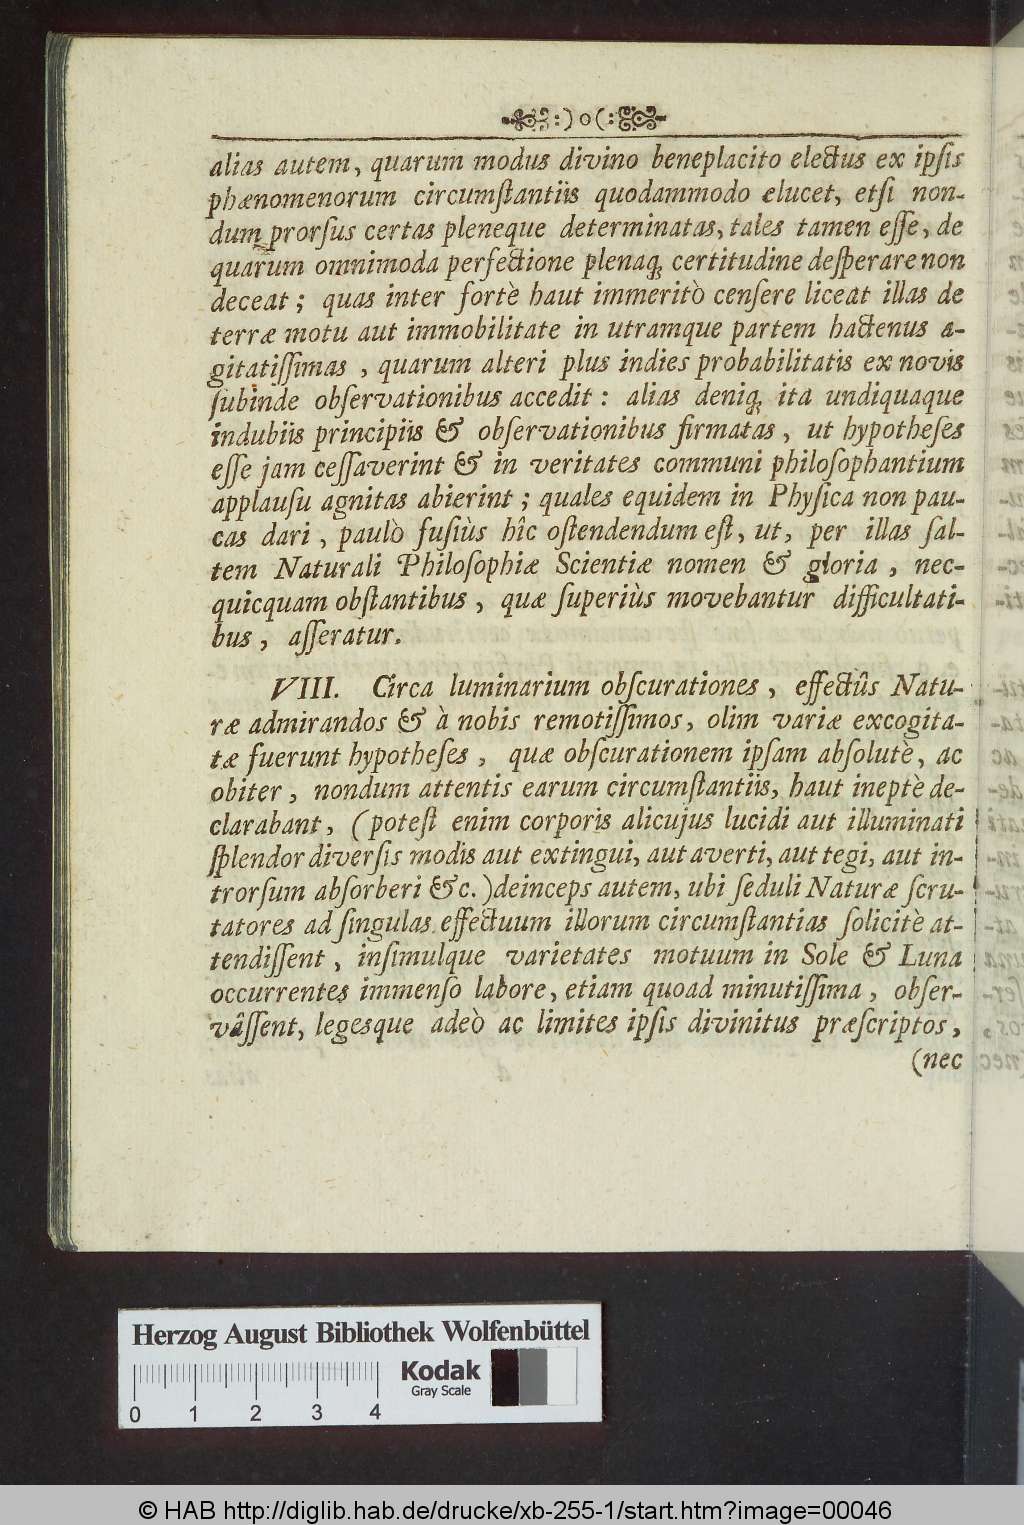 :)o(:
alias autem, quarum modus divino beneplacito electus ex ipſis
phænomenorum circumſtantiis quodammodo elucet, etſi non-
dum prorſus certas pleneque determinatas, tales tamen eſſe, de
quarum omnimoda perfectione plenaq; certitudine deſperare non
deceat; quas inter fortè haut immeritò cenſere liceat illas de
terræ motu aut immobilitate in utramque partem hactenus a-
gitatiſſimas, quarum alteri plus indies probabilitatis ex novis
ſubinde obſervationibus accedit: alias deniq; ita undiquaque
indubiis principiis & obſervationibus firmatas, ut hypotheſes
eſſe jam ceſſaverint & in veritates communi philoſophantium
applauſu agnitas abierint; quales equidem in Phyſica non pau-
cas dari, paulò fuſiùs hîc oſtendendum eſt, ut, per illas ſal-
tem Naturali Philoſophiæ Scientiæ nomen & gloria, nec-
quicquam obſtantibus, quæ ſuperiùs movebantur difficultati-
bus, aſſeratur.
VIII. Circa luminarium obſcurationes, effectûs Natu-
ræ admirandos & à nobis remotiſſimos, olim variæ excogita-
tæ fuerunt hypotheſes, quæ obſcurationem ipſam abſolutè, ac
obiter, nondum attentis earum circumſtantiis, haut ineptè de-
clarabant, (poteſt enim corporis alicujus lucidi aut illuminati
ſplendor diverſis modis aut extingui, aut averti, aut tegi, aut in-
trorſum abſorberi &c.) deinceps autem, ubi ſeduli Naturæ ſcru-
tatores ad ſingulas effectuum illorum circumſtantias ſolicitè at-
tendiſſent, inſimulque varietates motuum in Sole & Luna
occurrentes immenſo labore, etiam quoad minutiſſima, obſer-
vâſſent, legesque adeò ac limites ipſis divinitus præſcriptos,
(nec
Herzog August Bibliothek Wolfenbüttel
Kodak
Gray Scale
0 1 2 3 4
© HAB http://diglib.hab.de/drucke/xb-255-1/start.htm?image=00046